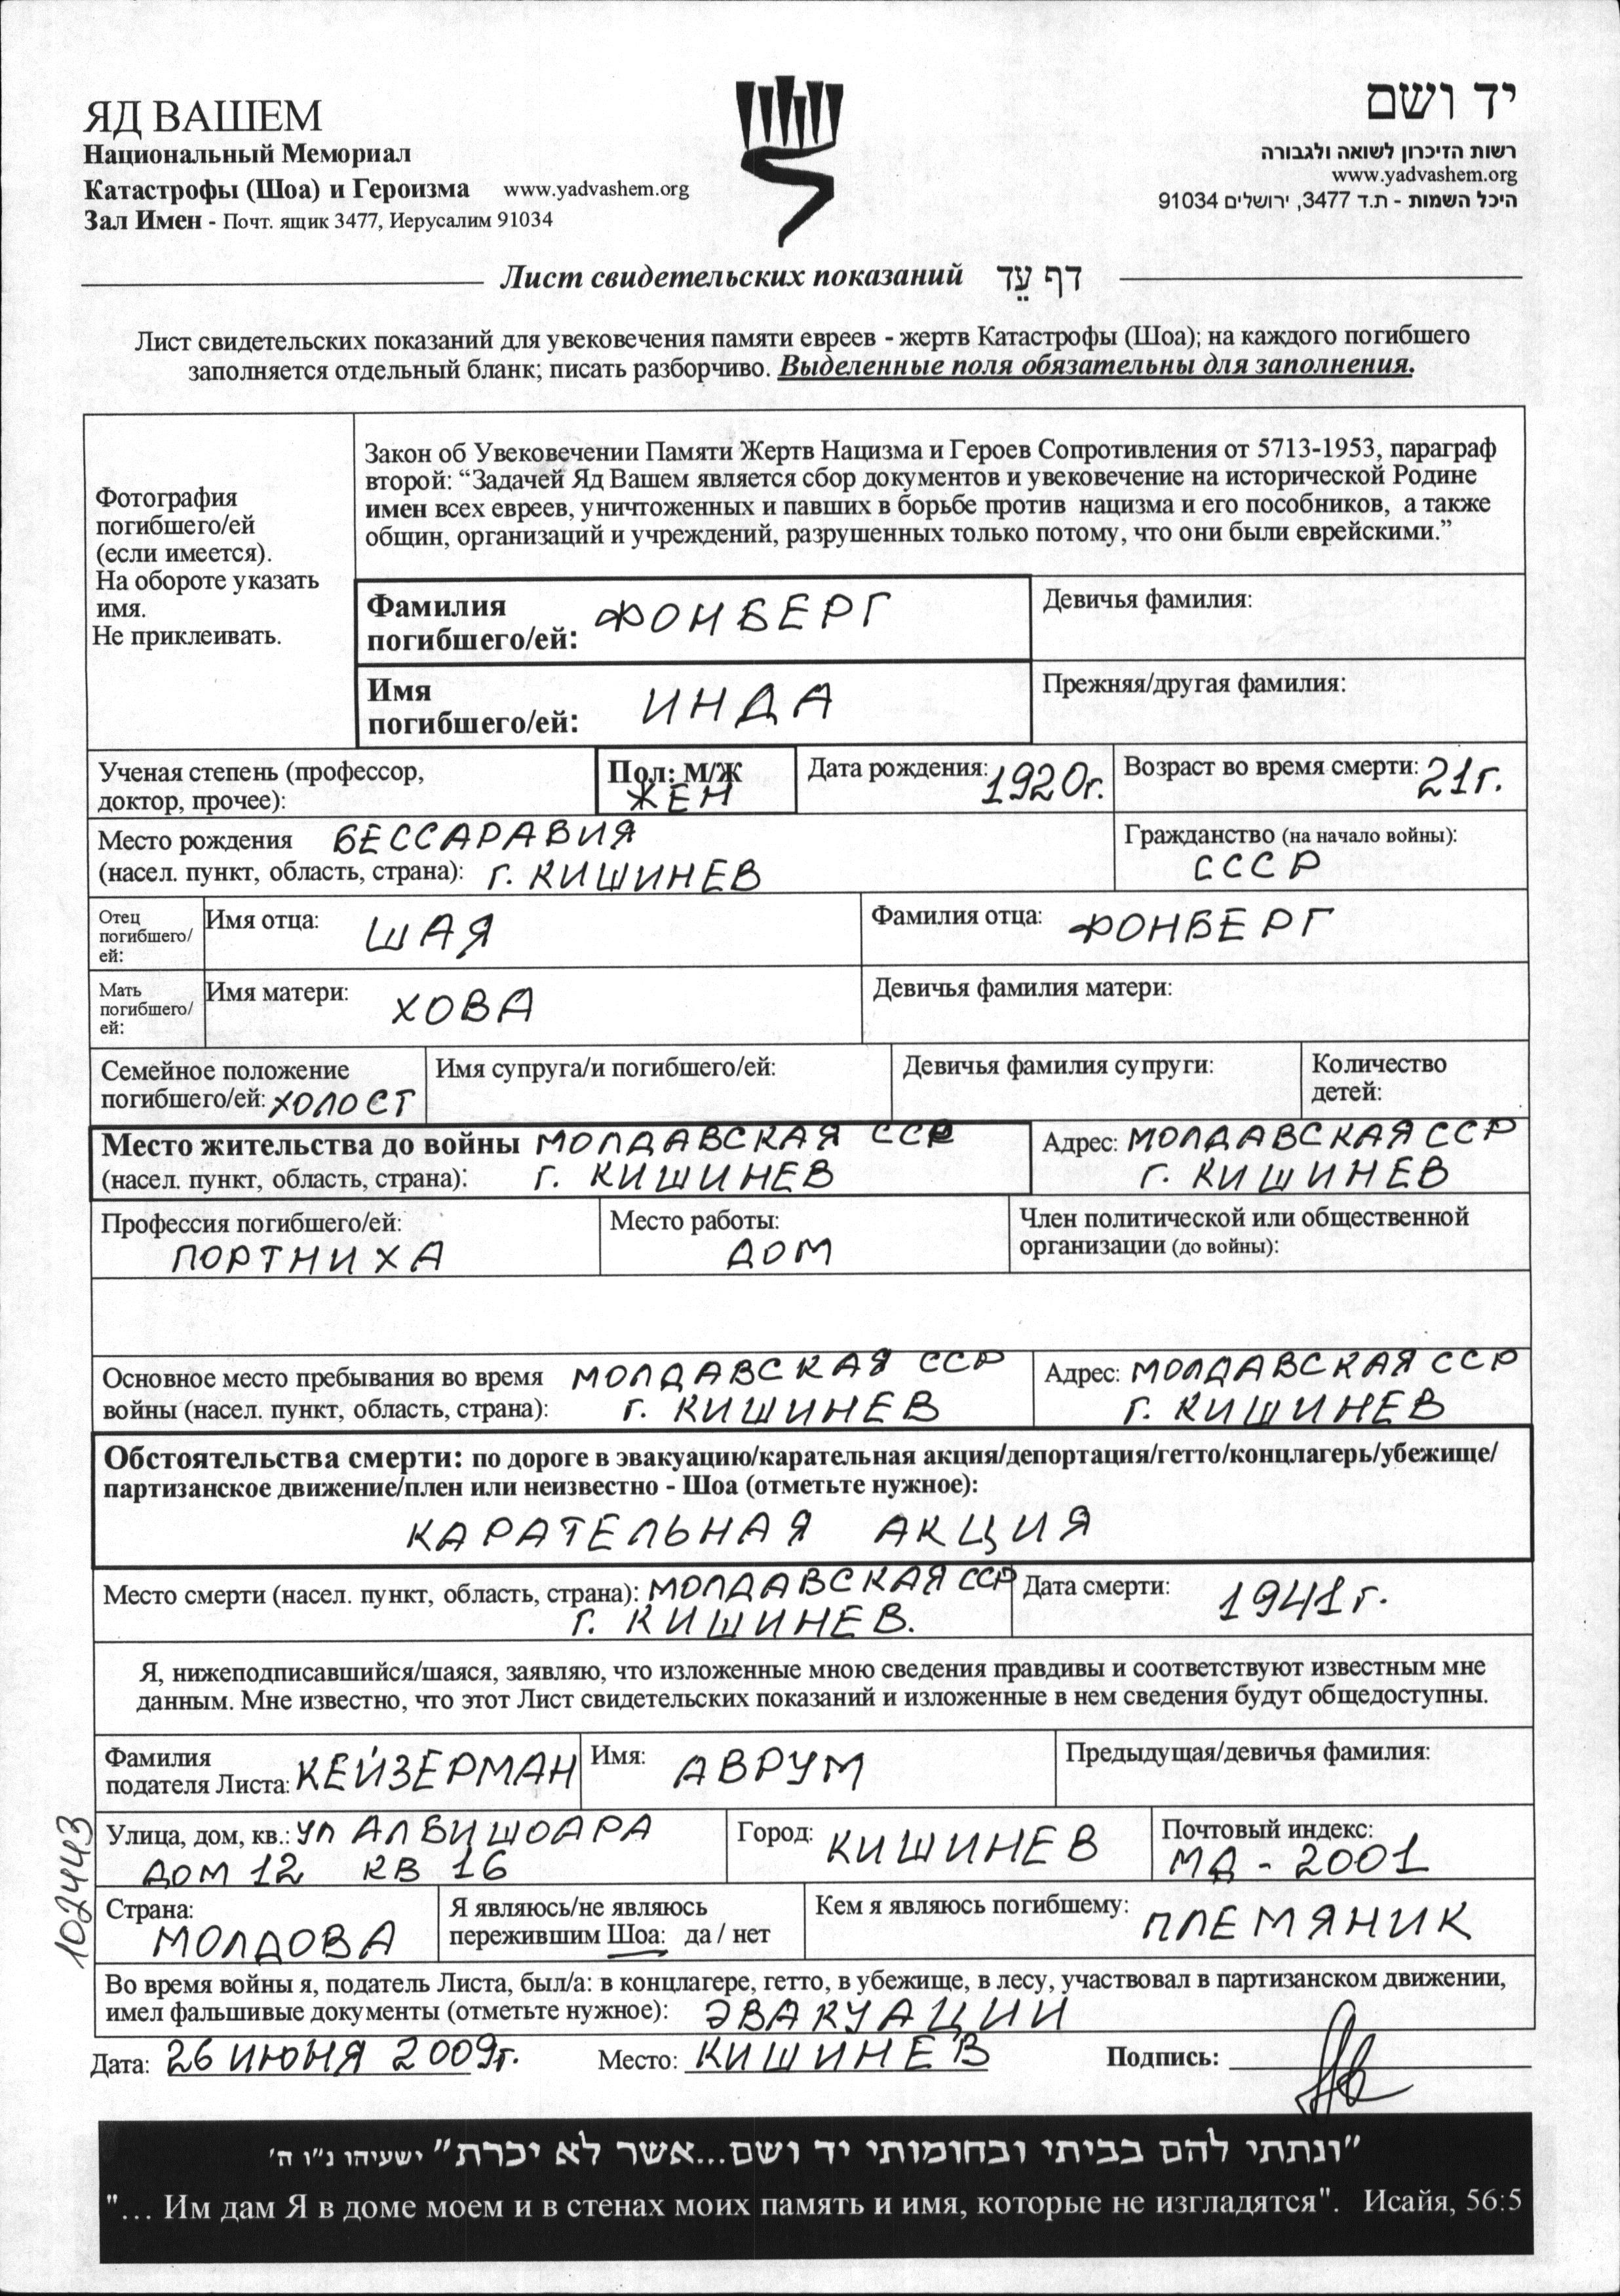 ЯД ВАШЕМ
Национальный Мемориал
Катастрофы (Шоа) и Героизма www.yadvashem.org
Зал Имен - Почт. ящик 3477, Иерусалим 91034
יד ושם
רשות הזיכרון לשואה ולגבורה
www.yadvashem.org
היכל השמות - ת.ד 3477, ירושלים 91034
Лист свидетельских показаний דף עֵד
Лист свидетельских показаний для увековечения памяти евреев - жертв Катастрофы (Шоа); на каждого погибшего
заполняется отдельный бланк; писать разборчиво. Выделенные поля обязательны для заполнения.
Фотография
погибшего/ей
(если имеется).
На обороте указать
имя.
Не приклеивать.
Закон об Увековечении Памяти Жертв Нацизма и Героев Сопротивления от 5713-1953, параграф
второй: “Задачей Яд Вашем является сбор документов и увековечение на исторической Родине
имен всех евреев, уничтоженных и павших в борьбе против нацизма и его пособников, а также
общин, организаций и учреждений, разрушенных только потому, что они были еврейскими.”
Фамилия
погибшего/ей: ФОНБЕРГ
Девичья фамилия:
Имя
погибшего/ей: ИНДА
Прежняя/другая фамилия:
Ученая степень (профессор,
доктор, прочее):
Пол: М/Ж
ЖЕН
Дата рождения: 1920г.
Возраст во время смерти: 21г.
Место рождения БЕССАРАВИЯ
(насел. пункт, область, страна): г. КИШИНЕВ
Гражданство (на начало войны):
СССР
Отец
погибшего/
ей:
Имя отца: ШАЯ
Фамилия отца: ФОНБЕРГ
Мать
погибшего/
ей:
Имя матери: ХОВА
Девичья фамилия матери:
Семейное положение
погибшего/ей: ХОЛОСТ
Имя супруга/и погибшего/ей:
Девичья фамилия супруги:
Количество
детей:
Место жительства до войны МОЛДАВСКАЯ ССР
(насел. пункт, область, страна): г. КИШИНЕВ
Адрес: МОЛДАВСКАЯ ССР
г. КИШИНЕВ
Профессия погибшего/ей:
ПОРТНИХА
Место работы:
ДОМ
Член политической или общественной
организации (до войны):
Основное место пребывания во время МОЛДАВСКАЯ ССР
войны (насел. пункт, область, страна): г. КИШИНЕВ
Адрес: МОЛДАВСКАЯ ССР
г. КИШИНЕВ
Обстоятельства смерти: по дороге в эвакуацию/карательная акция/депортация/гетто/концлагерь/убежище/
партизанское движение/плен или неизвестно - Шоа (отметьте нужное):
КАРАТЕЛЬНАЯ АКЦИЯ
Место смерти (насел. пункт, область, страна): МОЛДАВСКАЯ ССР
г. КИШИНЕВ.
Дата смерти: 1941г.
Я, нижеподписавшийся/шаяся, заявляю, что изложенные мною сведения правдивы и соответствуют известным мне
данным. Мне известно, что этот Лист свидетельских показаний и изложенные в нем сведения будут общедоступны.
Фамилия
подателя Листа: КЕЙЗЕРМАН
Имя: АВРУМ
Предыдущая/девичья фамилия:
Улица, дом, кв.: УЛ АЛВИШОАРА
ДОМ 12 КВ 16
Город: КИШИНЕВ
Почтовый индекс:
МД - 2001
102443
Страна:
МОЛДОВА
Я являюсь/не являюсь
пережившим Шоа: да / нет
Кем я являюсь погибшему: ПЛЕМЯНИК
Во время войны я, податель Листа, был/а: в концлагере, гетто, в убежище, в лесу, участвовал в партизанском движении,
имел фальшивые документы (отметьте нужное): ЭВАКУАЦИИ
Дата: 26 ИЮНЯ 2009г. Место: КИШИНЕВ Подпись:
"ונתתי להם בביתי ובחומותי יד ושם...אשר לא יכרת" ישעיהו נ"ו ה'
"... Им дам Я в доме моем и в стенах моих память и имя, которые не изгладятся". Исайя, 56:5